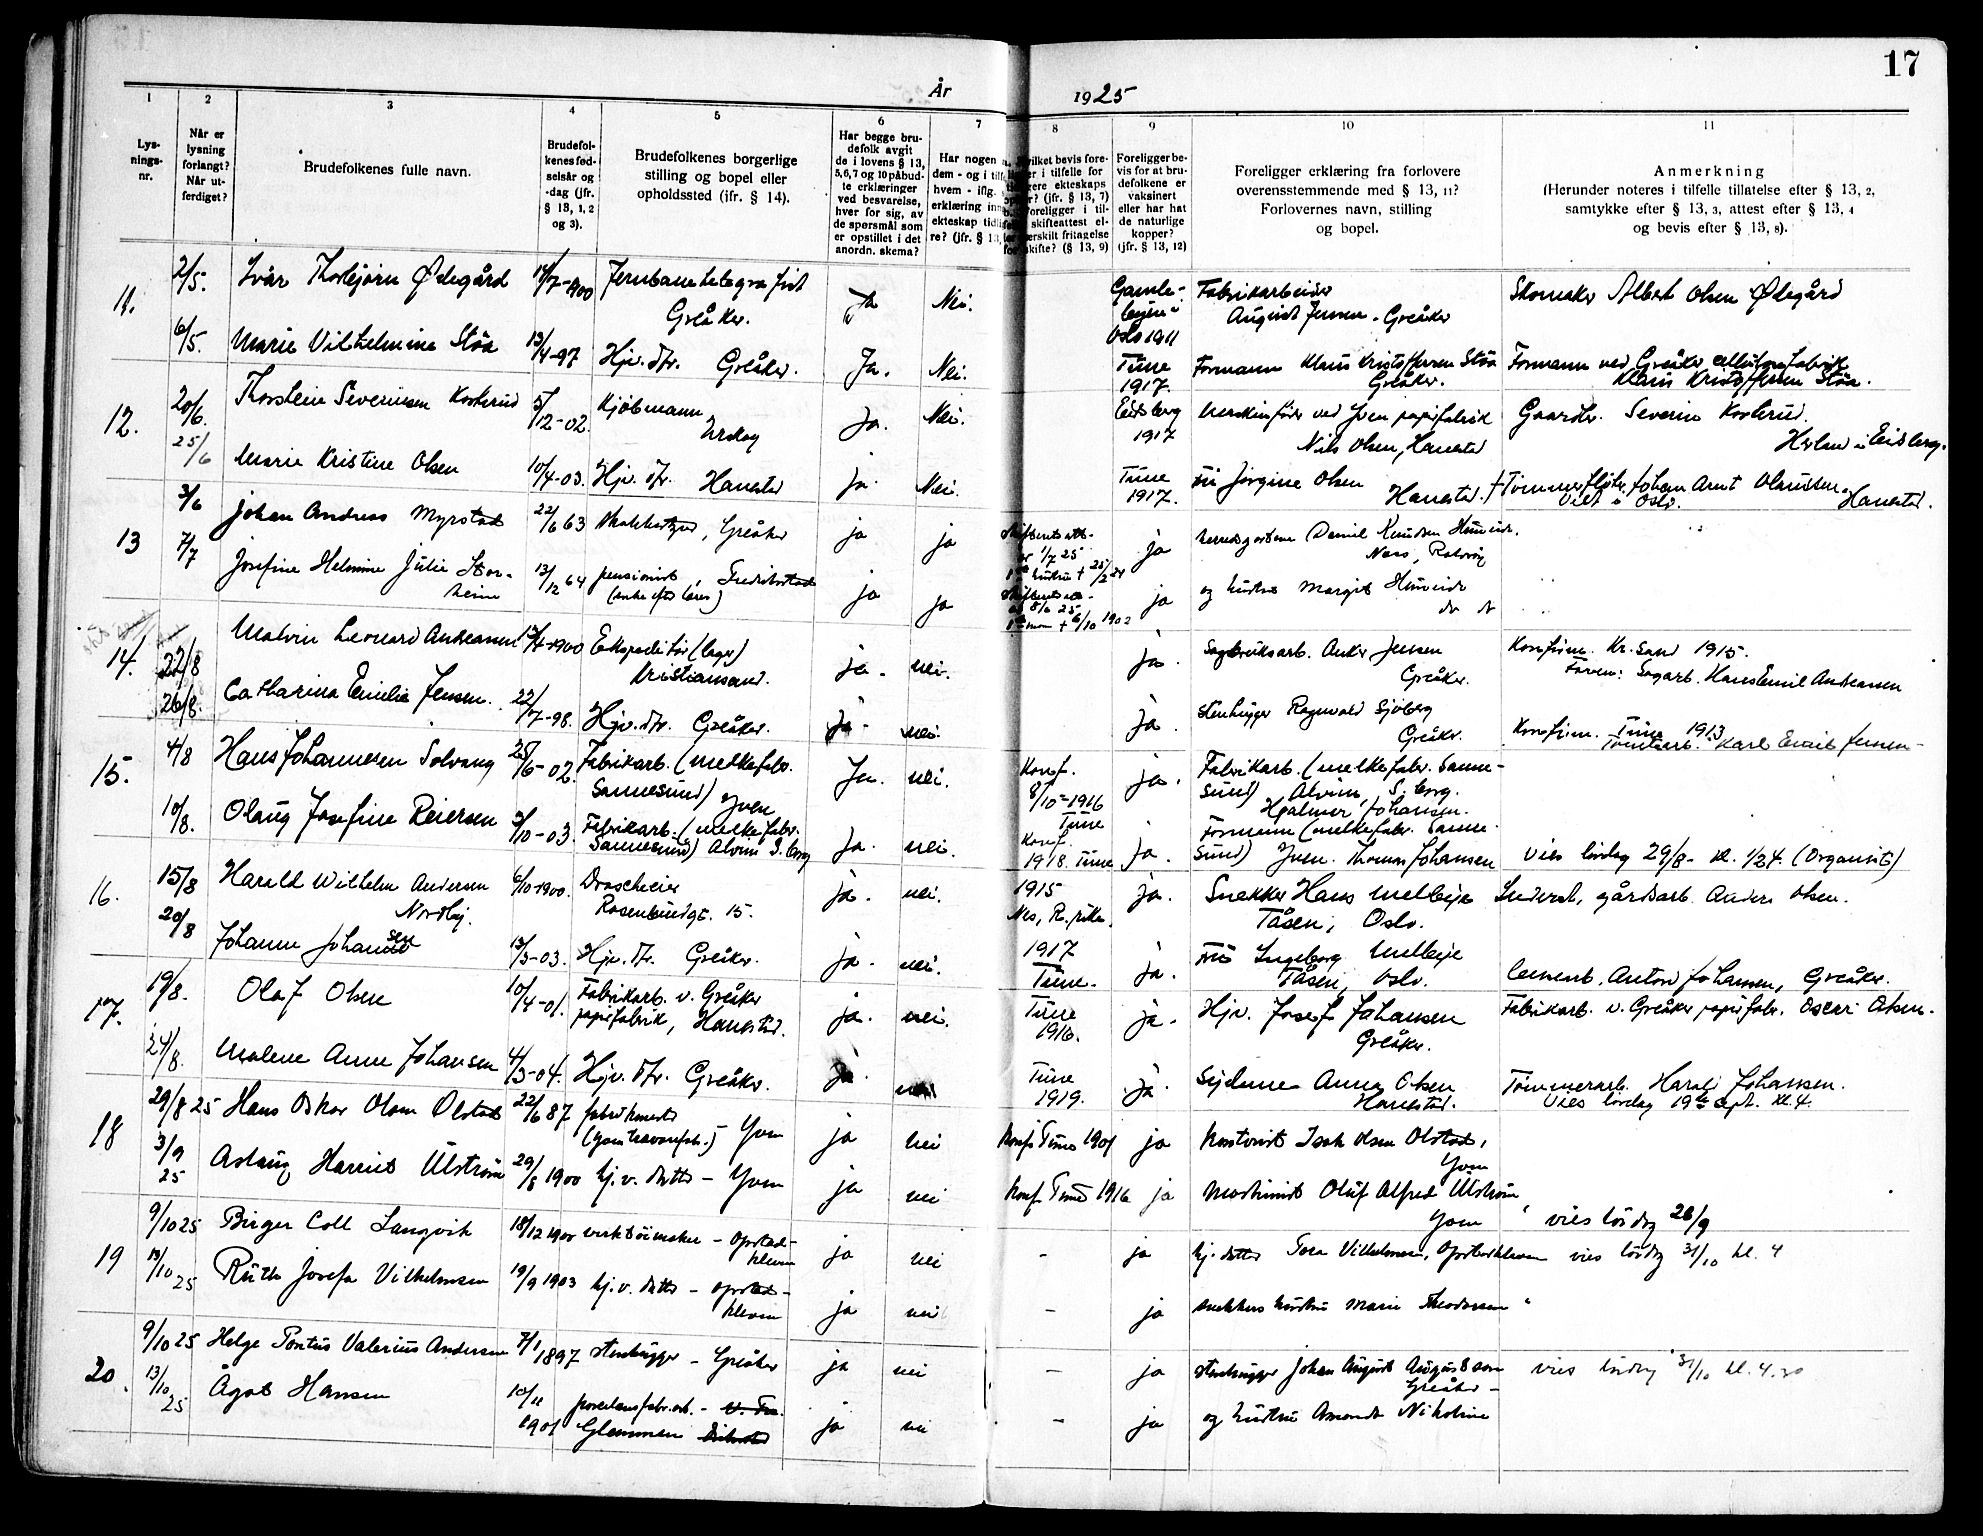 17
År 1925
1 2 3 4 5 6 7 8 9 10 11
Lys-
nings-
nr.
Når er
lysning
forlangt?
Når ut-
ferdiget?
Brudefolkenes fulle navn.
Brudefol-
kenes fød-
selsår og
-dag (jfr.
§ 13, 1, 2
og 3).
Brudefolkenes borgerlige
stilling og bopel eller
opholdssted (ifr. § 14).
Har begge bru-
defolk avgit
de i lovens § 13,
5,6,7 og 10 påbud-
te erklæringer
ved besvarelse,
hver for sig, av
de spørsmål som
er opstillet i det
anordn. skema?
Har nogen
dem - og i
hvem - iflg.
erklæring
ekteskap
re? (jfr. § 13,
vilket bevis fore-
er i tilfelle for
ekteskaps
(jfr. § 13, 7)
foreligger i til-
skifteattest el-
særskilt fritagelse
skifte? (§ 13, 9)
Foreligger be-
vis for at bru-
defolkene er
vaksinert
eller har hat
de naturlige
kopper?
(jfr. § 13, 12)
Foreligger erklæring fra forlovere
overensstemmende med § 13, 11?
Forlovernes navn, stilling
og bopel.
Anmerkning
(Herunder noteres i tilfelle tillatelse efter § 13, 2,
samtykke efter § 13, 3, attest efter § 13, 4
og bevis efter § 13, 8).
11. 2/5. Ivar Thorbjørn Ødegård 14/7-1900 Jernbanetelegrafist
Greåker. Ja Nei. Gamle-
byen
Oslo 1911 Fabrikarbeider
August Jensen. Greåker Skomaker Albert Olsen Ødegård
6/5. Marie Vilhelmine Støa 13/4-97 Hjv. dtr. Greåker. Ja. Nei. Tune
1917. Formann Klaus Kristoffersen Støa
Greåker. Formann ved Greåker cellulosefabrik
Klaus Kristoffersen Støa.
12. 20/6. Thorstein Severinsen Kosterud 5/12-02. Kjøbmann
Ja. Nei. Eidsberg
1917 Maskinfører ved Yven papirfabrik
Nils Olsen, Hanestad Gaardbr. Severin Kosterud.
Herland i Eidsberg.
25/6 Marie Kristine Olsen 10/4-03. Hjv. dtr. Hanestad ja. Nei. Tune
1917. Fru Jørgine Olsen
Hanestad. Tømmerfløter Johan Arnt Olaussen, Hanestad.
Viet i Oslo.
13 3/6 Johan Andreas Myrstad 22/6 63 Greåker ja ja
1/7 25
ja Daniel Knudsen
7/7 Josefine Helmine Julie Stor-
heim 13/12 64 pensionist, Fredrikstad
(enke efter lærer) ja ja
8/6 25
6/10 1902 ja og hustru Margit
14. 22/8 Malvin Leonard Andreassen 1900 Ekspeditør (lager)
Kristiansand. ja. nei. ja. Sagbruksarb. Anker Jensen
Greåker. Konfirm. Kr. Sand 1915.
Foren: Sagarb. Hans Emil Andreassen
26/8. Catharina Emilie Jensen. 22/7-98. Hjv. dtr. Greåker. ja. nei. ja. Stenhugger Ragnvald Sjøberg
Greåker. Konfirm. Tune 1913
Tomtearb. Karl Emil Jensen
15. 4/8 Hans Johannesen Solvang 25/6-02. Fabrikarb. (melkefabr.
Sannesund) Yven Ja. nei. Konf.
8/10-1916
Tune ja. Fabrikarb. (melkefabr. Sanne-
sund) Alvim, S.borg.
Hjalmar Johansen.
10/8. Olaug Josefine Reiersen 2/10-03. Fabrikarb. (melkefabr.
Sannesund) Alvim S.borg Ja. nei. Konf.
1918. Tune ja. Formann (melkefabr. Sanne-
sund) Yven. Thomas Johansen Vies lørdag 29/8- kl. 1/2 4. (Organist)
16. 15/8 Harald Wilhelm Andersen
Nordby. 6/10-1900. Drosjeeier
Rosenlundgt. 15. ja. nei. 1915
Nes, Romerike. ja. Snekker Hans Melleije
Tåsen, Oslo. gårdsarb. Anders Olsen.
20/8 Johanne Johansen 13/3-03. Hjv. dtr. Greåker. ja. nei. 1917
Tune. ja. Fru Ingeborg Melleije
Tåsen, Oslo. Cementarb. Anton Johansen, Greåker.
17. 19/8. Olaf Olsen 10/4-01. Fabrikarb. v. Greåker
papirfabrik, Hanestad. ja. nei. Tune
1916. ja. Hjv. Josef Johansen
Greåker. Fabrikarb. v. Greåker papirfabr. Oscar Olsen.
24/8. Malene Anne Johansen 4/3-04. Hjv. dtr. Greåker. ja. nei Tune
1919. ja. Sydame Anna Olsen
Hanestad. Tømmerarb. Harald Johansen.
Vies lørdag 19de sept. kl. 4.
18 29/8 25 Hans Oskar Olsen Olstad 22/6 87 fabrikmester
Yven ja nei Konf. Tune 1901 ja Kontorist Isak Olsen Olstad,
Yven
3/9
25 Aslaug Harriet Ulstrøm 29/8 1900 hj.v. datter - Yven ja nei Konf. Tune 1916 ja Maskinist Oluf Alfred Ulstrøm
Yven vies lørdag 26/9
19 9/10 25 Birger Coll Langvik 18/12 1900 verktøimaker - Opstad-
kleven ja nei - ja hj. datter Tora Vilhelmsen, Opstadkleven vies lørdag 31/10 kl. 4
13/10
25 Ruth Josefa Vilhelmsen 19/9 1903 hj.v. datter - Opstad-
kleven ja nei - ja snekkers hustru Marie Theodorsen "
20. 9/10 25 Helge Pontus Valerius Andersen 7/1 1897 stenhugger - Greåker ja nei - ja stenhugger Johan August Augustson
Greåker - vies lørdag 31/10 kl. 4.30
13/10
25 Ågot Hansen 10/11
1901 porcelensfabr.arb. -
Glemmen ja nei - ja og hustru Amanda Nikoline